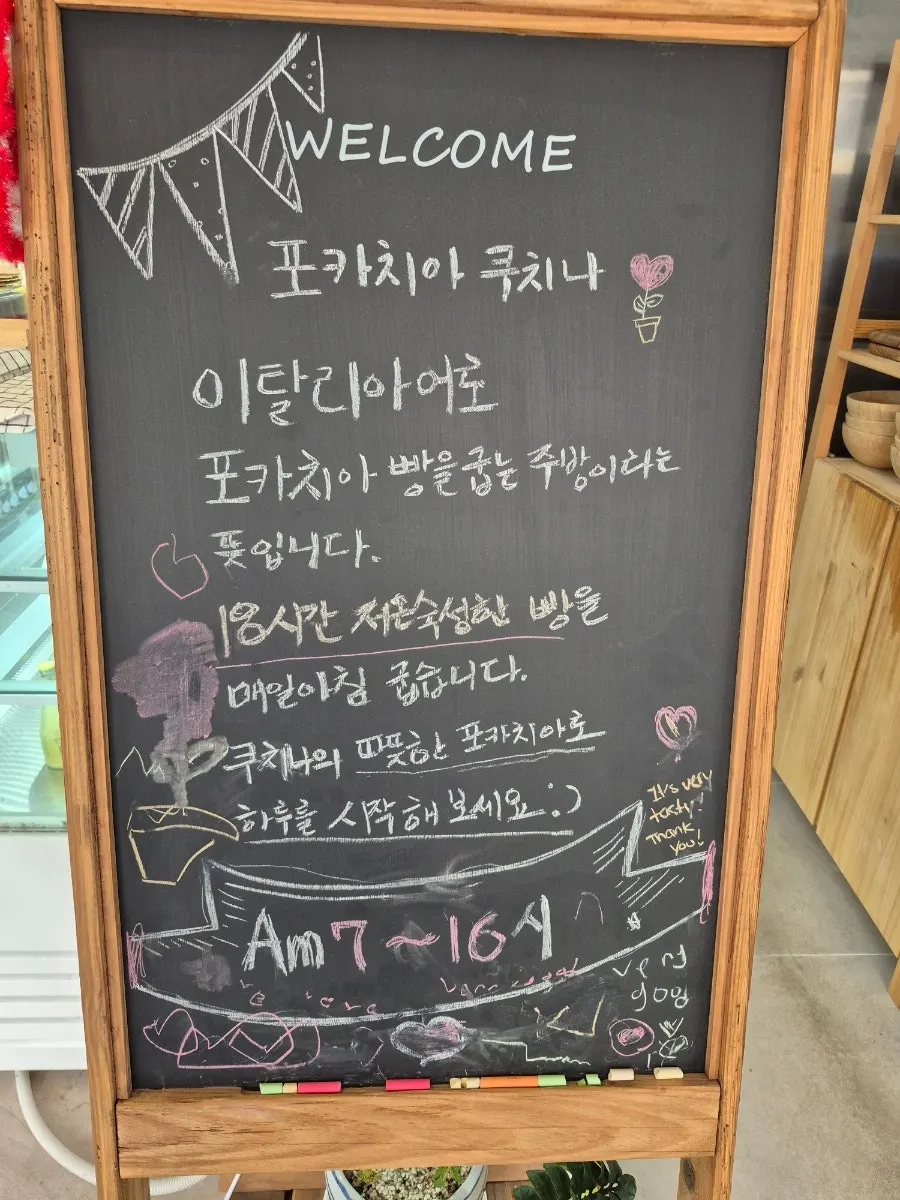 WELCOME
포카치아 쿠치나
이탈리아어로
포카치아 빵을 굽는 주방이라는
뜻입니다.
18시간 저온숙성한 빵을
매일아침 굽습니다.
쿠치나의 따뜻한 포카치아로
하루를 시작해 보세요:)
It's very
tasty
Thank
you!
Am 7~16시
very
good